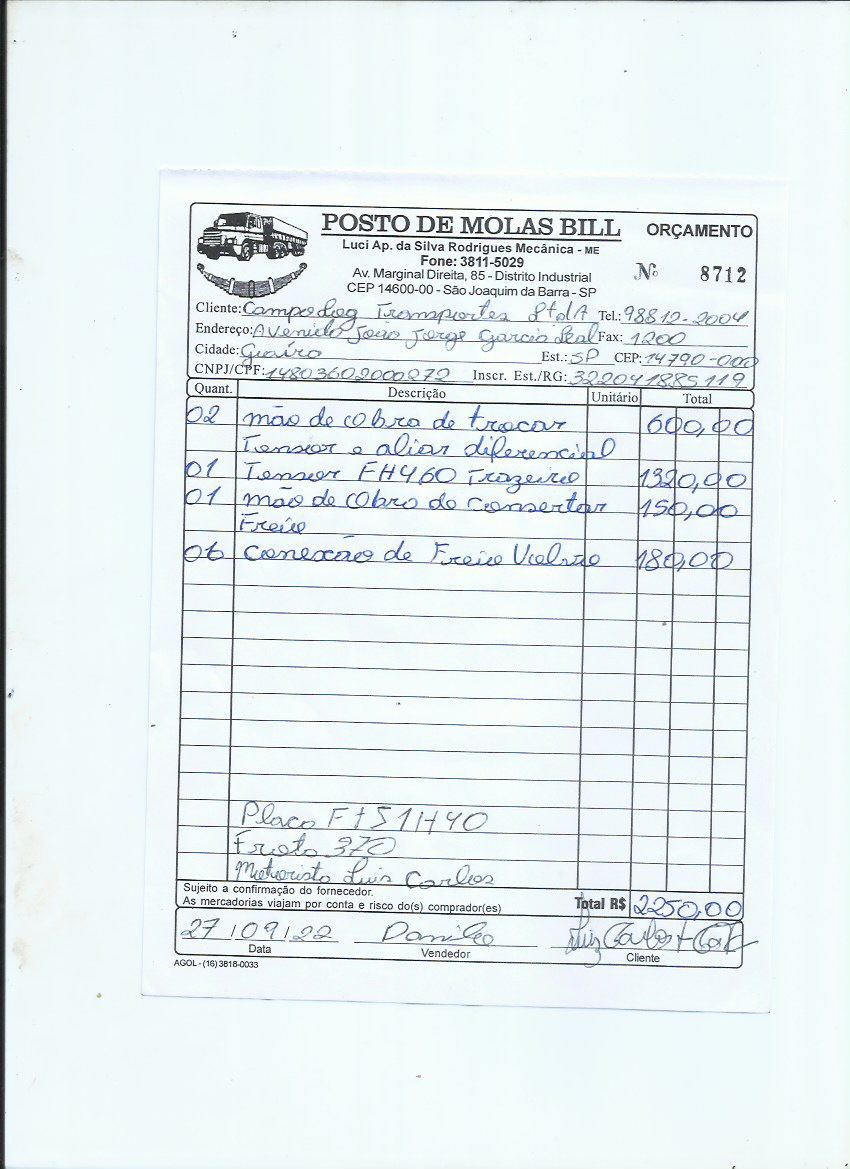 POSTO DE MOLAS BILL ORÇAMENTO
Luci Ap. da Silva Rodrigues Mecânica - ME
Fone: 3811-5029
Nº 8712
Av. Marginal Direita, 85 - Distrito Industrial
CEP 14600-00 - São Joaquim da Barra - SP
Cliente: Campo Log Transportes LtdA Tel.: 98812-2004
Endereço: AVenida João Jorge Garcia Leal Fax: 1200
Cidade: Guaíra Est.: SP CEP: 14790-000
CNPJ/CPF: 14803602000272 Inscr. Est./RG: 322041885119
Quant. Descrição Unitário Total
02 mão de obra de trocar 600,00
Tensor e aliar diferencial
01 Tensor FH460 Trazeiro 1320,00
01 mão de Obra de Consertar 150,00
Freio
06 Conexão de Freio 180,00
Placa FTS1H40
Frota 370
Motoristo Luis Carlos
Sujeito a confirmação do fornecedor.
As mercadorias viajam por conta e risco do(s) comprador(es) Total R$ 2250,00
27/09/22 Danilo Luiz Carlos
Data Vendedor Cliente
AGOL - (16) 3818-0033